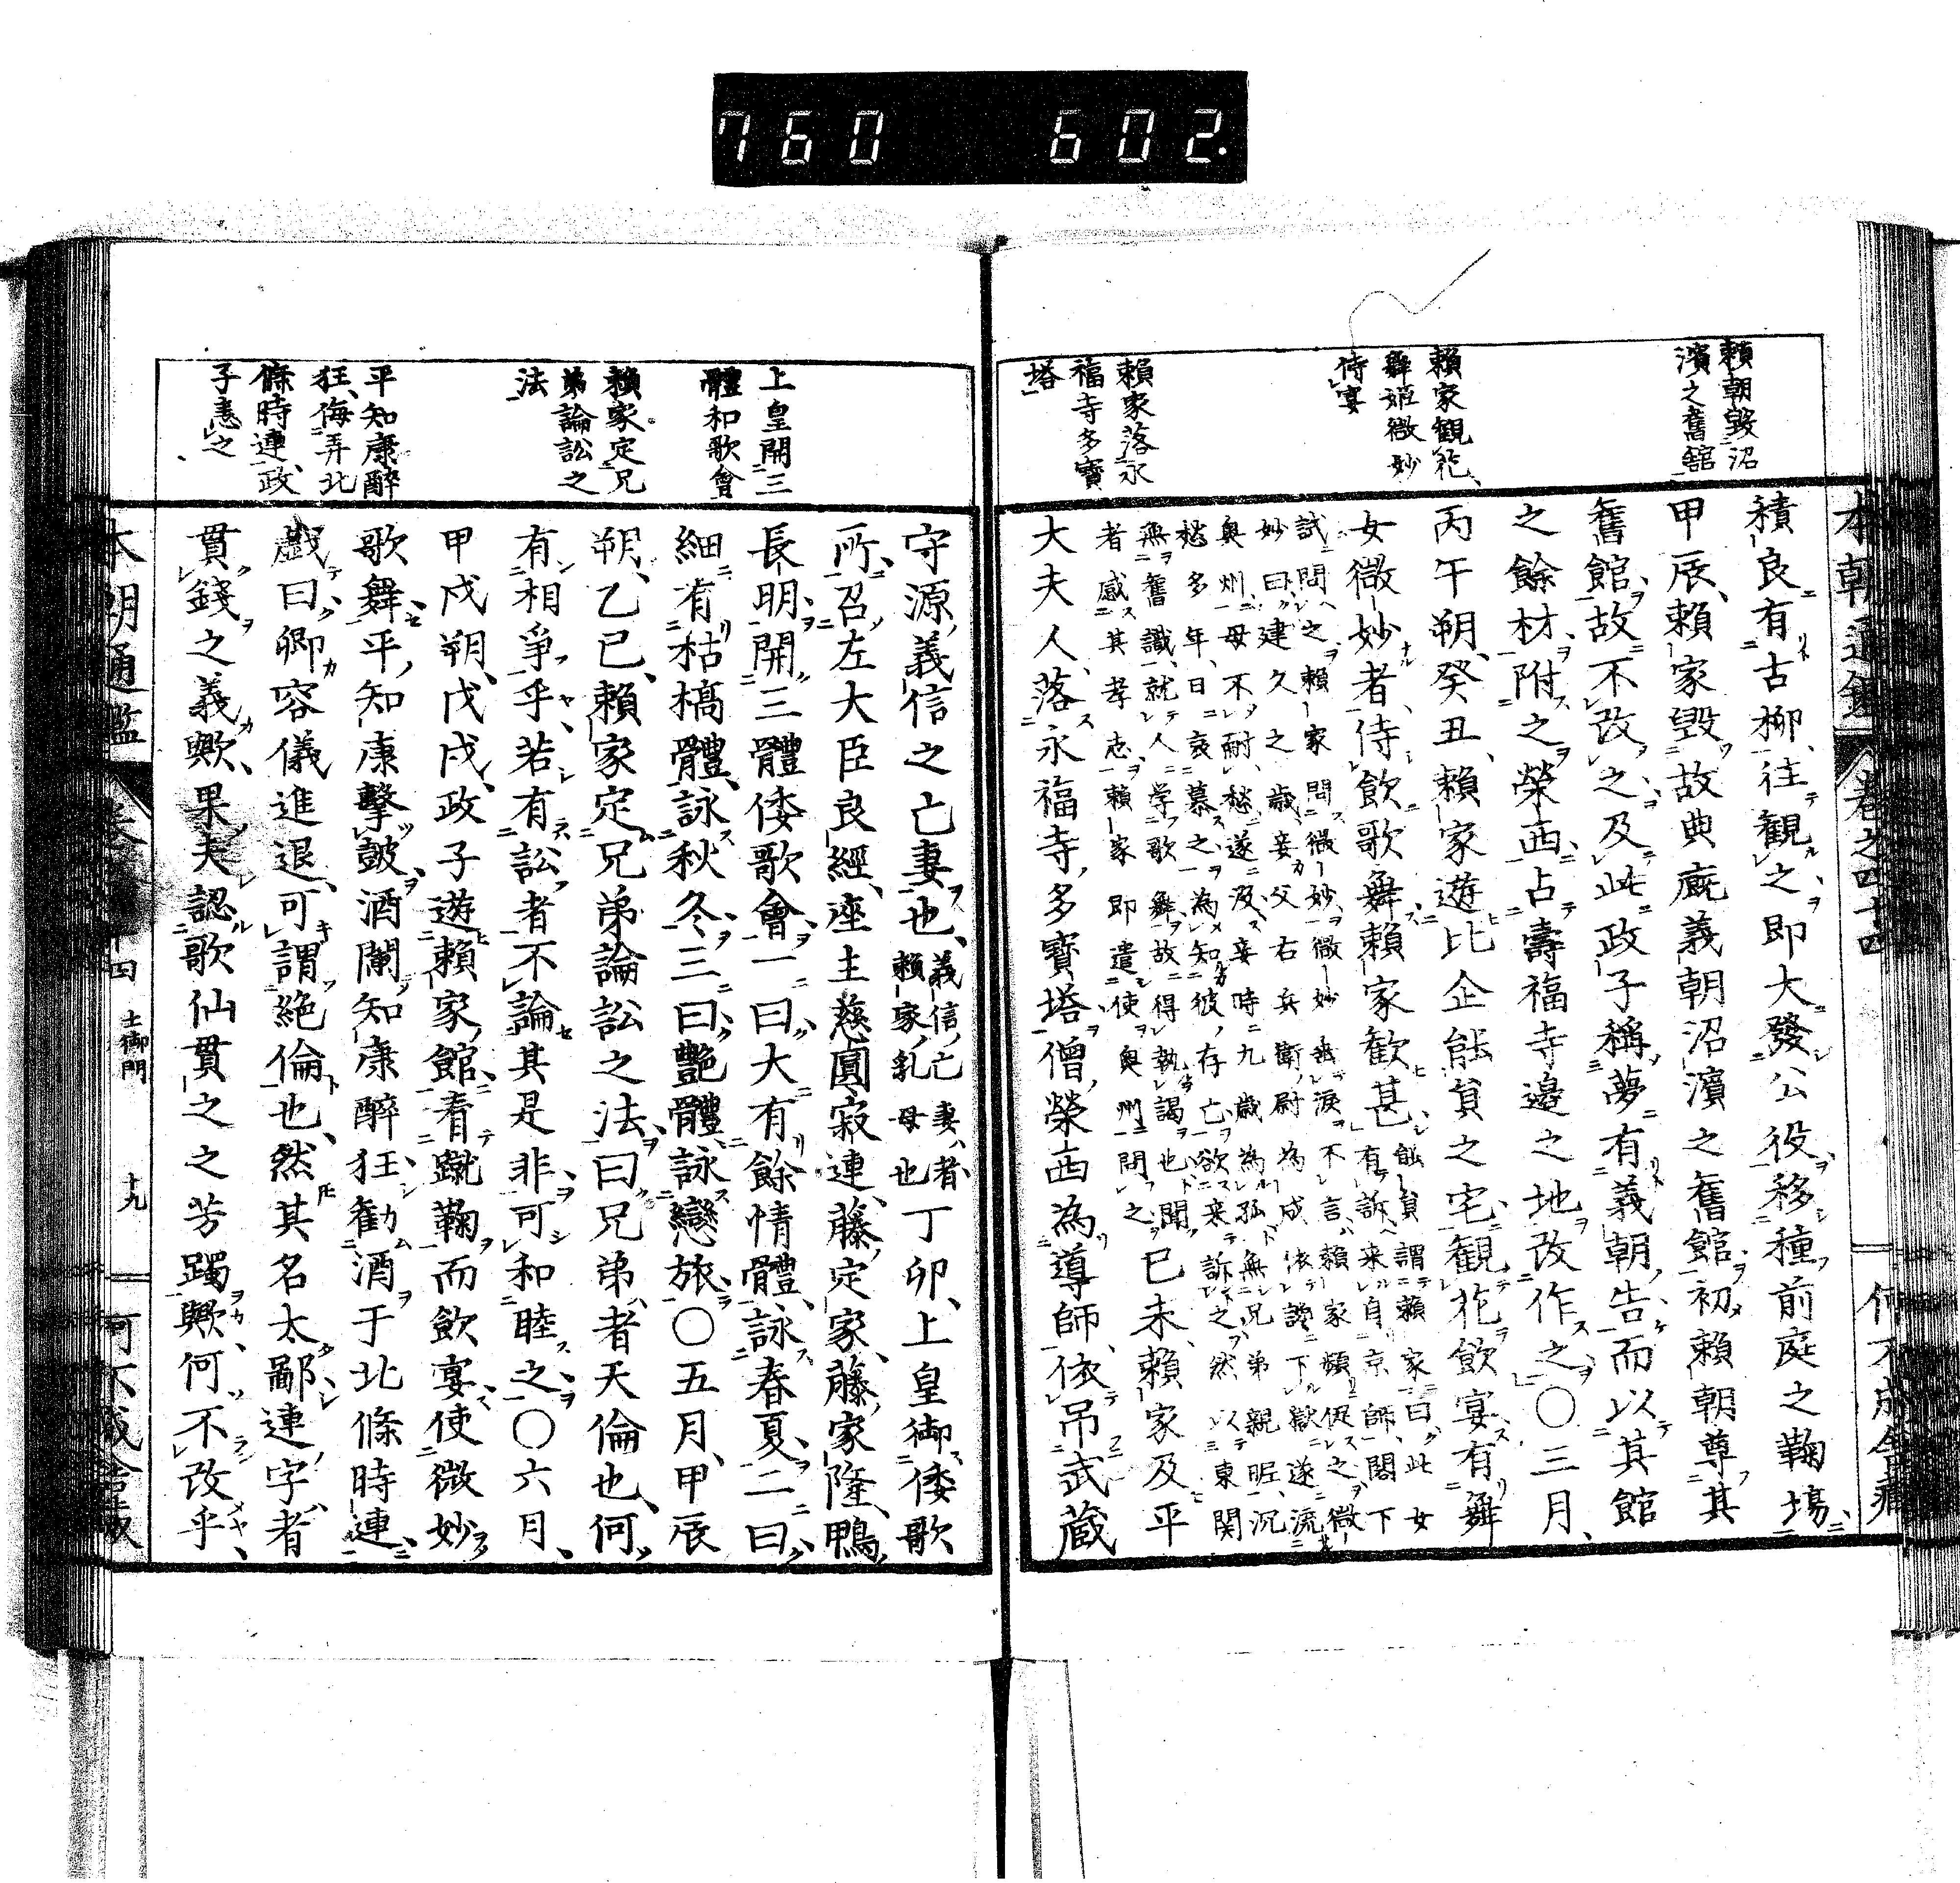 760 602.
賴朝毀沼
濱之舊舘
賴家觀花、
舞姬微妙
侍宴
賴家落永
福寺多寶
塔
本朝通鑑
卷之四十四
積良有古柳、往觀之即大發公役移種前庭之鞠場、
甲辰、賴家毀故典廐義朝沼濱之舊館、初賴朝尊其
舊館、故不改之、及此政子稱夢有義朝告而以其館
之餘材、附之榮西、占壽福寺邊之地改作之、〇三月、
丙午朔、癸丑、賴家遊比企能員之宅、觀花飲宴、有舞
女微妙者、侍飲歌舞、賴家歡甚、
能員謂賴家曰、此女
有訴來自京師、閣下
試問之、賴家問微妙、微妙垂淚不言、賴家頻促之、微
妙曰、建久之歲、妾父右兵衛尉為成依讒下獄、遂流
奧州、母不耐愁遂沒、妾時九歲為孤、無兄弟親眤、沉
愁多年、日哀慕之、為知彼存亡、欲來訴之、然以東関
無舊識、就人学歌舞、故得執謁也、聞
者感其孝志、賴家即遣使奧州問之
己未、賴家及平
大夫人、落永福寺多寶塔、僧榮西為導師、依吊武藏
上皇開三
體和歌會
賴家定兄
弟論訟之
法
平知康醉
狂、侮弄北
條時連、政
子恚之
守源義信之亡妻也、
義信亡妻者
賴家乳母也
丁卯、上皇御倭歌
所、召左大臣良經、座主慈圓寂連、藤定家、藤家隆、鴨
長明、開三體倭歌會、一曰、大有餘情體、詠春夏、二曰、
細有枯槁體、詠秋冬、三曰、艷體、詠戀旅、〇五月、甲辰
朔、乙巳、賴家定兄弟論訟之法、曰兄弟者天倫也、何
有相爭乎、若有訟者、不論其是非、可和睦之、〇六月、
甲戌朔、戊戌、政子遊賴家館、看蹴鞠而飲宴、使微妙
歌舞、平知康擊皷、酒闌、知康醉狂、勸酒于北條時連、
戲曰、卿容儀進退、可謂絶倫也、然其名太鄙、連字者
貫錢之義歟、果夫認歌仙貫之之芳躅歟、何不改乎、
本朝通鑑
四
土御門
十九